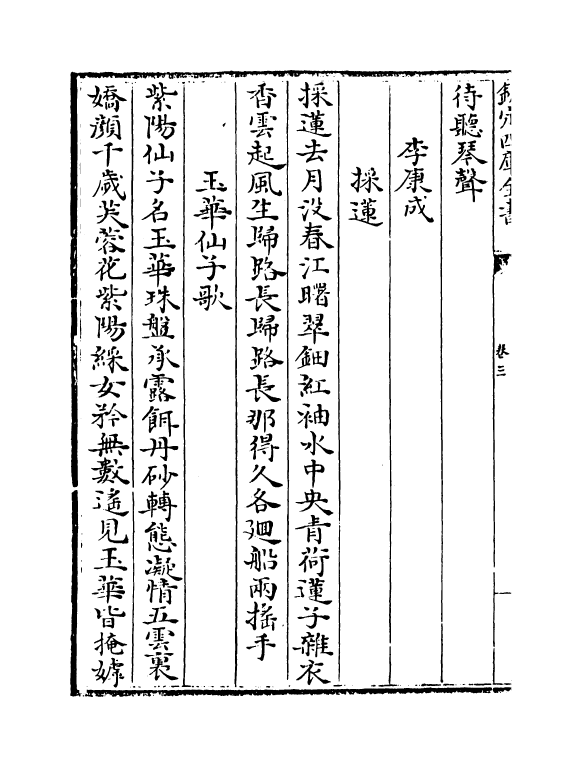 欽定四庫全書
卷三
待聽琴聲
李康成
採蓮
採蓮去月没春江曙翠鈿紅袖水中央青荷蓮子雜衣
香雲起風生歸路長歸路長那得久各廻船兩揺手
玉華仙子歌
紫陽仙子名玉華珠盤承露餌丹砂轉態凝情五雲裏
嬌顔千歲芙蓉花紫陽綵女矜無數遙見玉華皆掩嫭